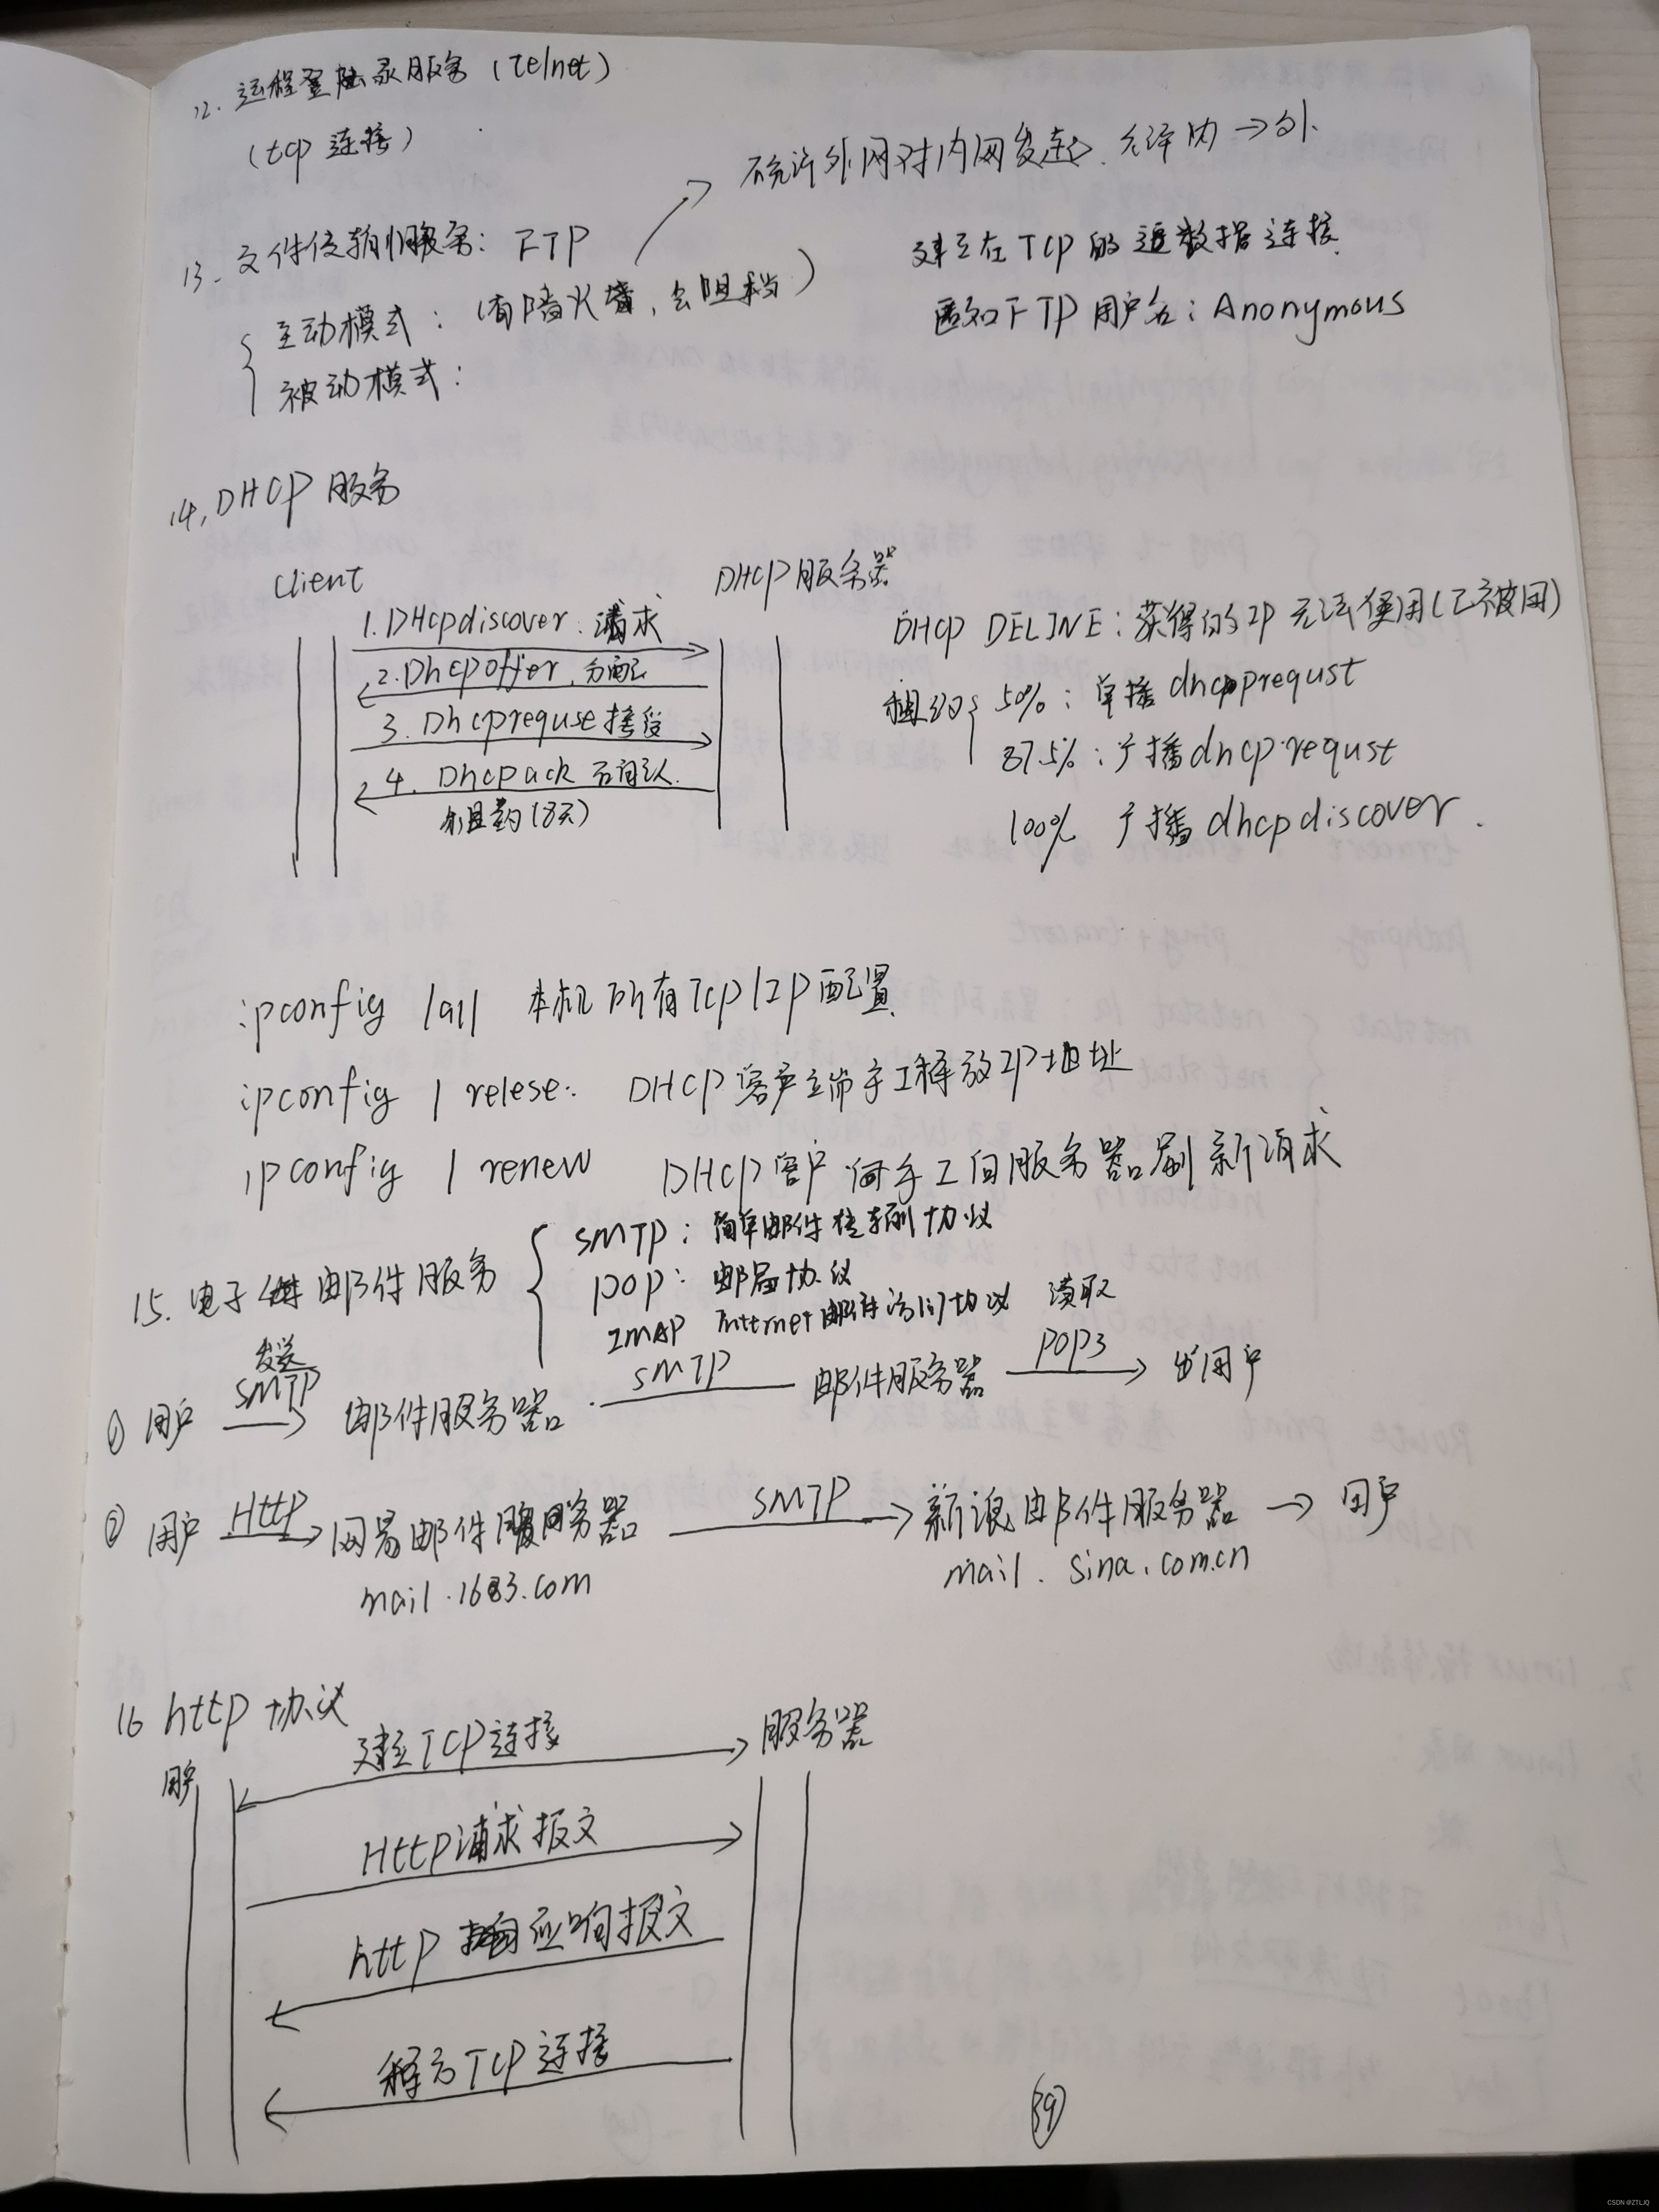 12. 远程登陆录服务 (telnet)
(tcp 连接)
不允许外网对内网发连, 允许内→外
13. 文件传输服务: FTP
主动模式: (有防火墙, 会阻挡)
被动模式:
建立在TCP的 数据连接
匿名FTP用户名: Anonymous
14. DHCP 服务
Client
DHCP服务器
1. DHcpdiscover 请求
2. Dhcpoffer 分配
3. Dhcprequse 接受
4. Dhcpack 确认
租约(8天)
DHCP DELINE: 获得的IP无法使用(已被用)
租约 50%: 单播dhcpprequst
87.5%: 广播dhcp requst
100% 广播dhcpdiscover.
ipconfig /all 本机所有Tcp/IP配置
ipconfig / relese: DHCP客户端手工释放IP地址
ipconfig / renew DHCP客户 手工向服务器刷新请求
15. 电子 邮件服务
SMTP: 简单邮件传输协议
POP: 邮局协议
IMAP Inttrnet邮件访问协议
① 用户 发送 SMTP → 邮件服务器 SMTP 邮件服务器 读取 POP3 → 用户
② 用户 Http → 网易邮件服务器 SMTP → 新浪邮件服务器 → 用户
mail.163.com
mail.sina.com.cn
16 http 协议
用户
服务器
建立TCP连接
Http请求报文
http 响应报文
释放TCP连接
39
CSDN @ZTLJQ